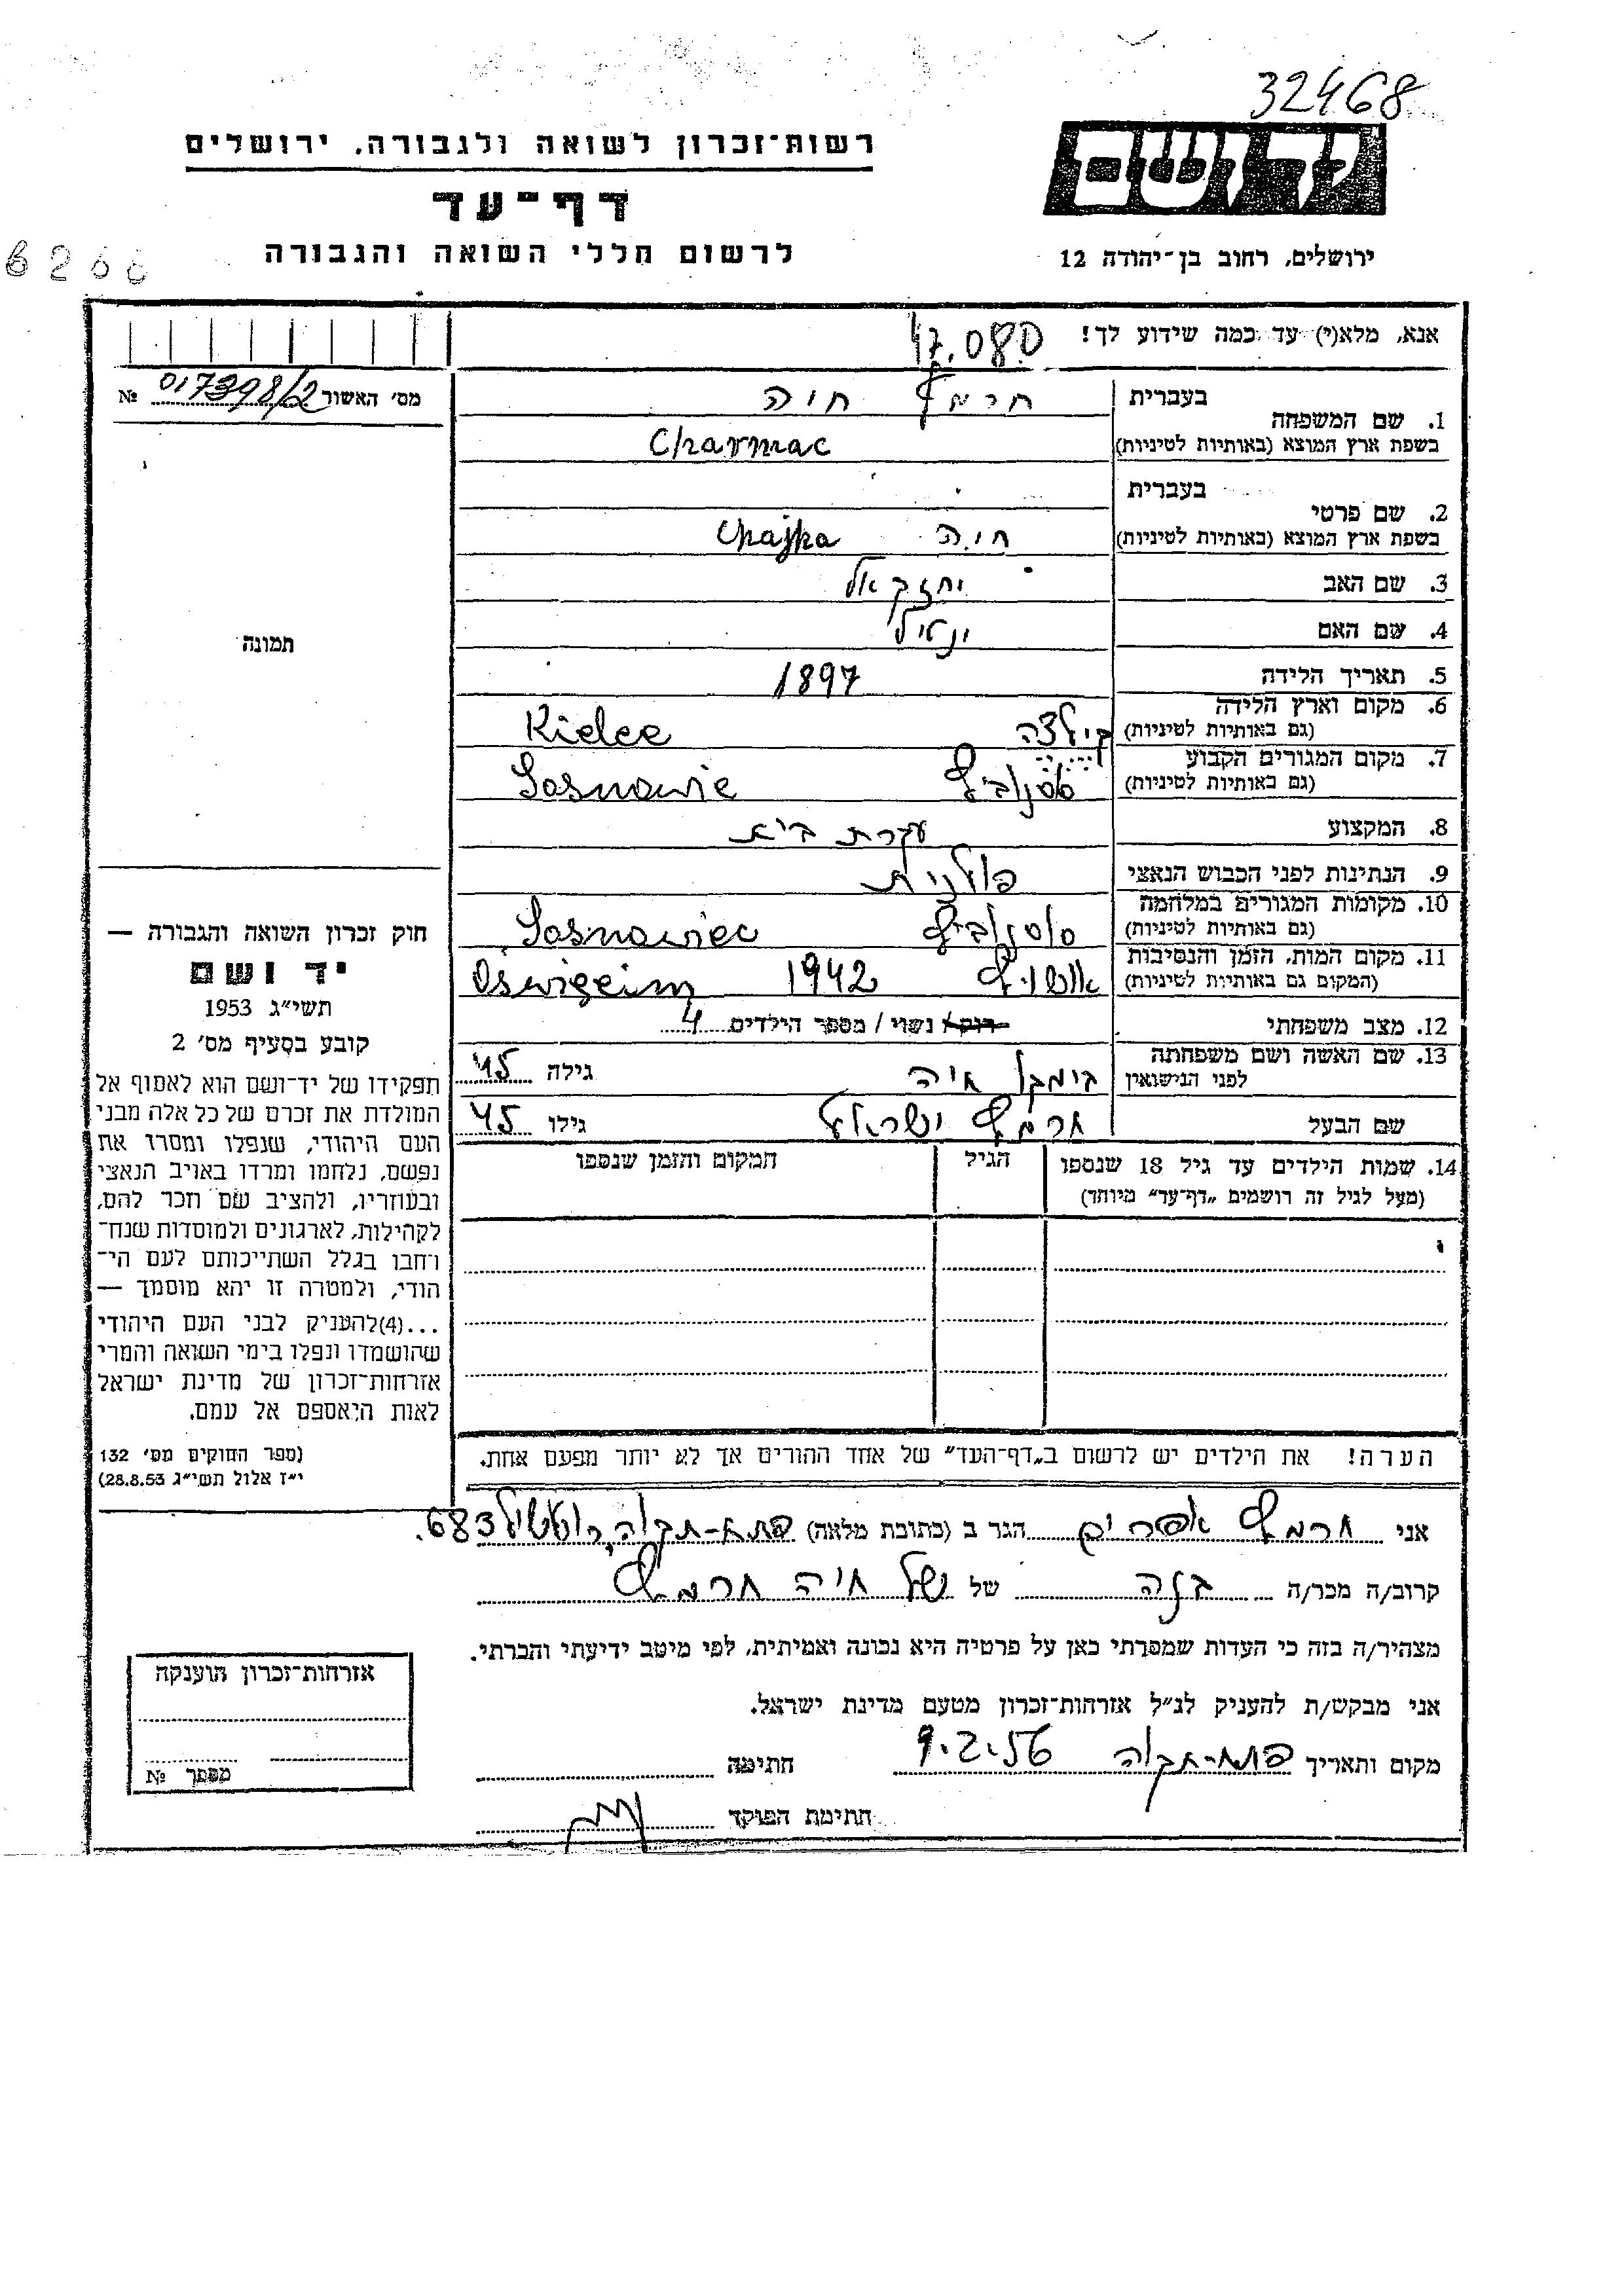 32468
רשות־זכרון לשואה ולגבורה, ירושלים
יד ושם
דף־עד
לרשום חללי השואה והגבורה
ירושלים, רחוב בן־יהודה 12
אנא, מלא(י) עד כמה שידוע לך! 47.080
מס׳ האשור 017398/2 №
1. שם המשפחה
בעברית חרמץ חיה
בשפת ארץ המוצא (באותיות לטיניות) Charmac
2. שם פרטי
בעברית
בשפת ארץ המוצא (באותיות לטיניות) חיה Chajka
3. שם האב יחזקאל
4. שם האם
5. תאריך הלידה 1897
6. מקום וארץ הלידה
(גם באותיות לטיניות) קילצה Kielce
7. מקום המגורים הקבוע
(גם באותיות לטיניות) סוסנוביץ Sosnowie
8. המקצוע עקרת בית
9. הנתינות לפני הכבוש הנאצי פולנית
10. מקומות המגורים במלחמה
(גם באותיות לטיניות) סוסנוביץ Sosnowiec
11. מקום המות, הזמן והנסיבות
(המקום גם באותיות לטיניות) אושויץ 1942 Oswigeim
12. מצב משפחתי רווק / נשוי / מספר הילדים 4
13. שם האשה ושם משפחתה
לפני הנישואין חיה גילה 45
שם הבעל חרמץ ישראל גילו 45
14. שמות הילדים עד גיל 18 שנספו
(מעל לגיל זה רושמים „דף־עד” מיוחד)
הגיל
המקום והזמן שנספו
הערה! את הילדים יש לרשום ב„דף־העד” של אחד ההורים אך לא יותר מפעם אחת.
תמונה
חוק זכרון השואה והגבורה —
יד ושם
תשי״ג 1953
קובע בסעיף מס׳ 2
תפקידו של יד־ושם הוא לאסוף אל
המולדת את זכרם של כל אלה מבני
העם היהודי, שנפלו ומסרו את
נפשם, נלחמו ומרדו באויב הנאצי
ובעוזריו, ולהציב שם וזכר להם,
לקהילות, לארגונים ולמוסדות שנח־
רחבו בגלל השתייכותם לעם הי־
הודי, ולמטרה זו יהא מוסמך —
...(4)להעניק לבני העם היהודי
שהושמדו ונפלו בימי השואה והמרי
אזרחות־זכרון של מדינת ישראל
לאות היאספם אל עמם.
(ספר החוקים מס׳ 132
י״ז אלול תשי״ג 28.8.53)
אני חרמץ אפרים הגר ב (כתובת מלאה) פתח-תקוה 683.
קרוב/ה מכר/ה בנה של של חיה חרמץ
מצהיר/ה בזה כי העדות שמסרתי כאן על פרטיה היא נכונה ואמיתית, לפי מיטב ידיעתי והכרתי.
אני מבקש/ת להעניק לנ״ל אזרחות־זכרון מטעם מדינת ישראל.
מקום ותאריך פתח-תקוה 9.2.56 חתימה
חתימת הפוקד
אזרחות־זכרון הוענקה
מספר №